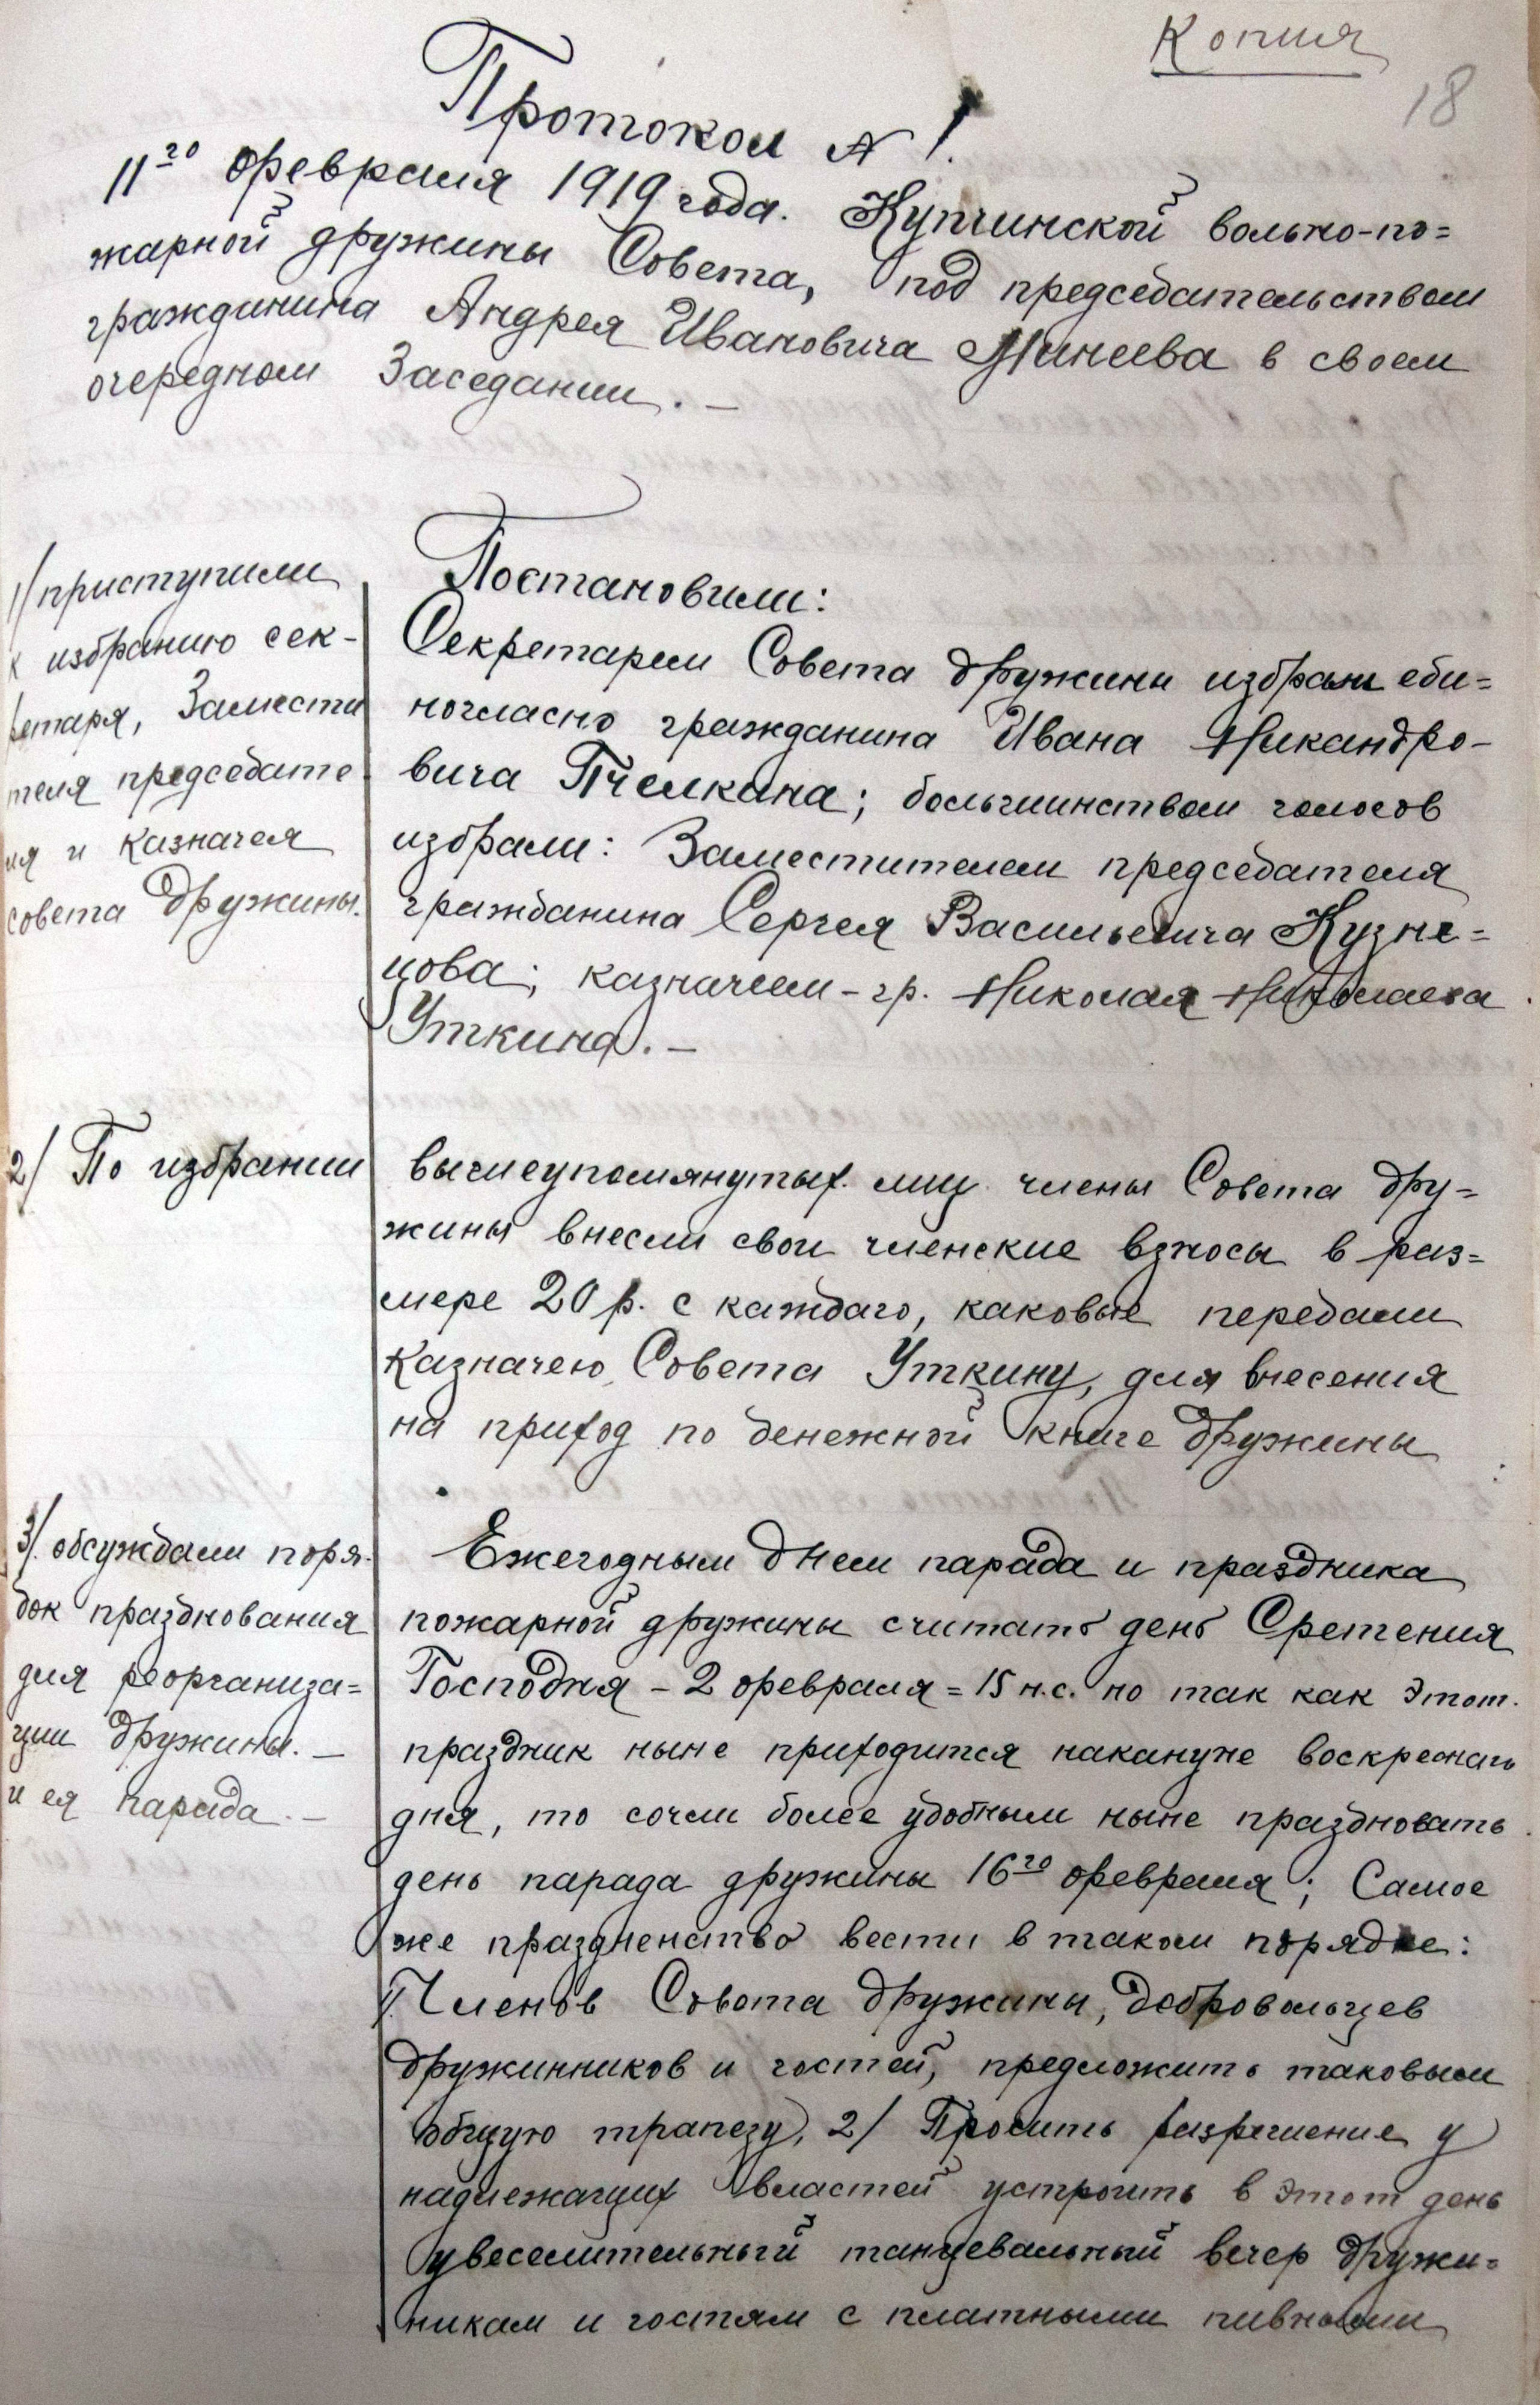 Копия
18
Протокол № 1.
11го февраля 1919 года. Купчинской вольно-по=
жарной дружины Совета, под председательством
гражданина Андрея Ивановича Минеева в своем
очередном Заседании. —
1/ приступили
к избранию сек-
ретаря, Замести
теля председате
ля и казначея
совета дружины.
Постановили:
Секретарем Совета дружины избран еди=
ногласно гражданина Ивана Никандро-
вича Пчелкина; большинством голосов
избрали: Заместителем председателя
гражданина Сергея Васильевича Кузне=
цова; казначеем - гр. Николая Николаева
Уткина. —
2/ По избрании
вышеупомянутых лиц члены Совета дру=
жины внесли свои членские взносы в раз=
мере 20 р. с каждаго, каковые передали
казначею Совета Уткину, для внесения
на приход по денежной книге дружины
3/ обсуждали поря-
док празднования
дня реорганиза=
ции дружины. —
и ея парада. —
Ежегодным днем парада и праздника
пожарной дружины считать день Сретения
Господня - 2 февраля = 15 н.с. но так как этот
праздник ныне приходится накануне воскреснаго
дня, то сочли более удобным ныне праздновать
день парада дружины 16го февраля; Самое
же празднество вести в таком порядке:
1/. Членов Совета дружины, добровольцев
дружинников и гостей, предложить таковым
общую трапезу, 2/ Просить разрешение у
надлежащих властей устроить в этот день
увеселительный танцевальный вечер дружи=
никам и гостям с платными пивными